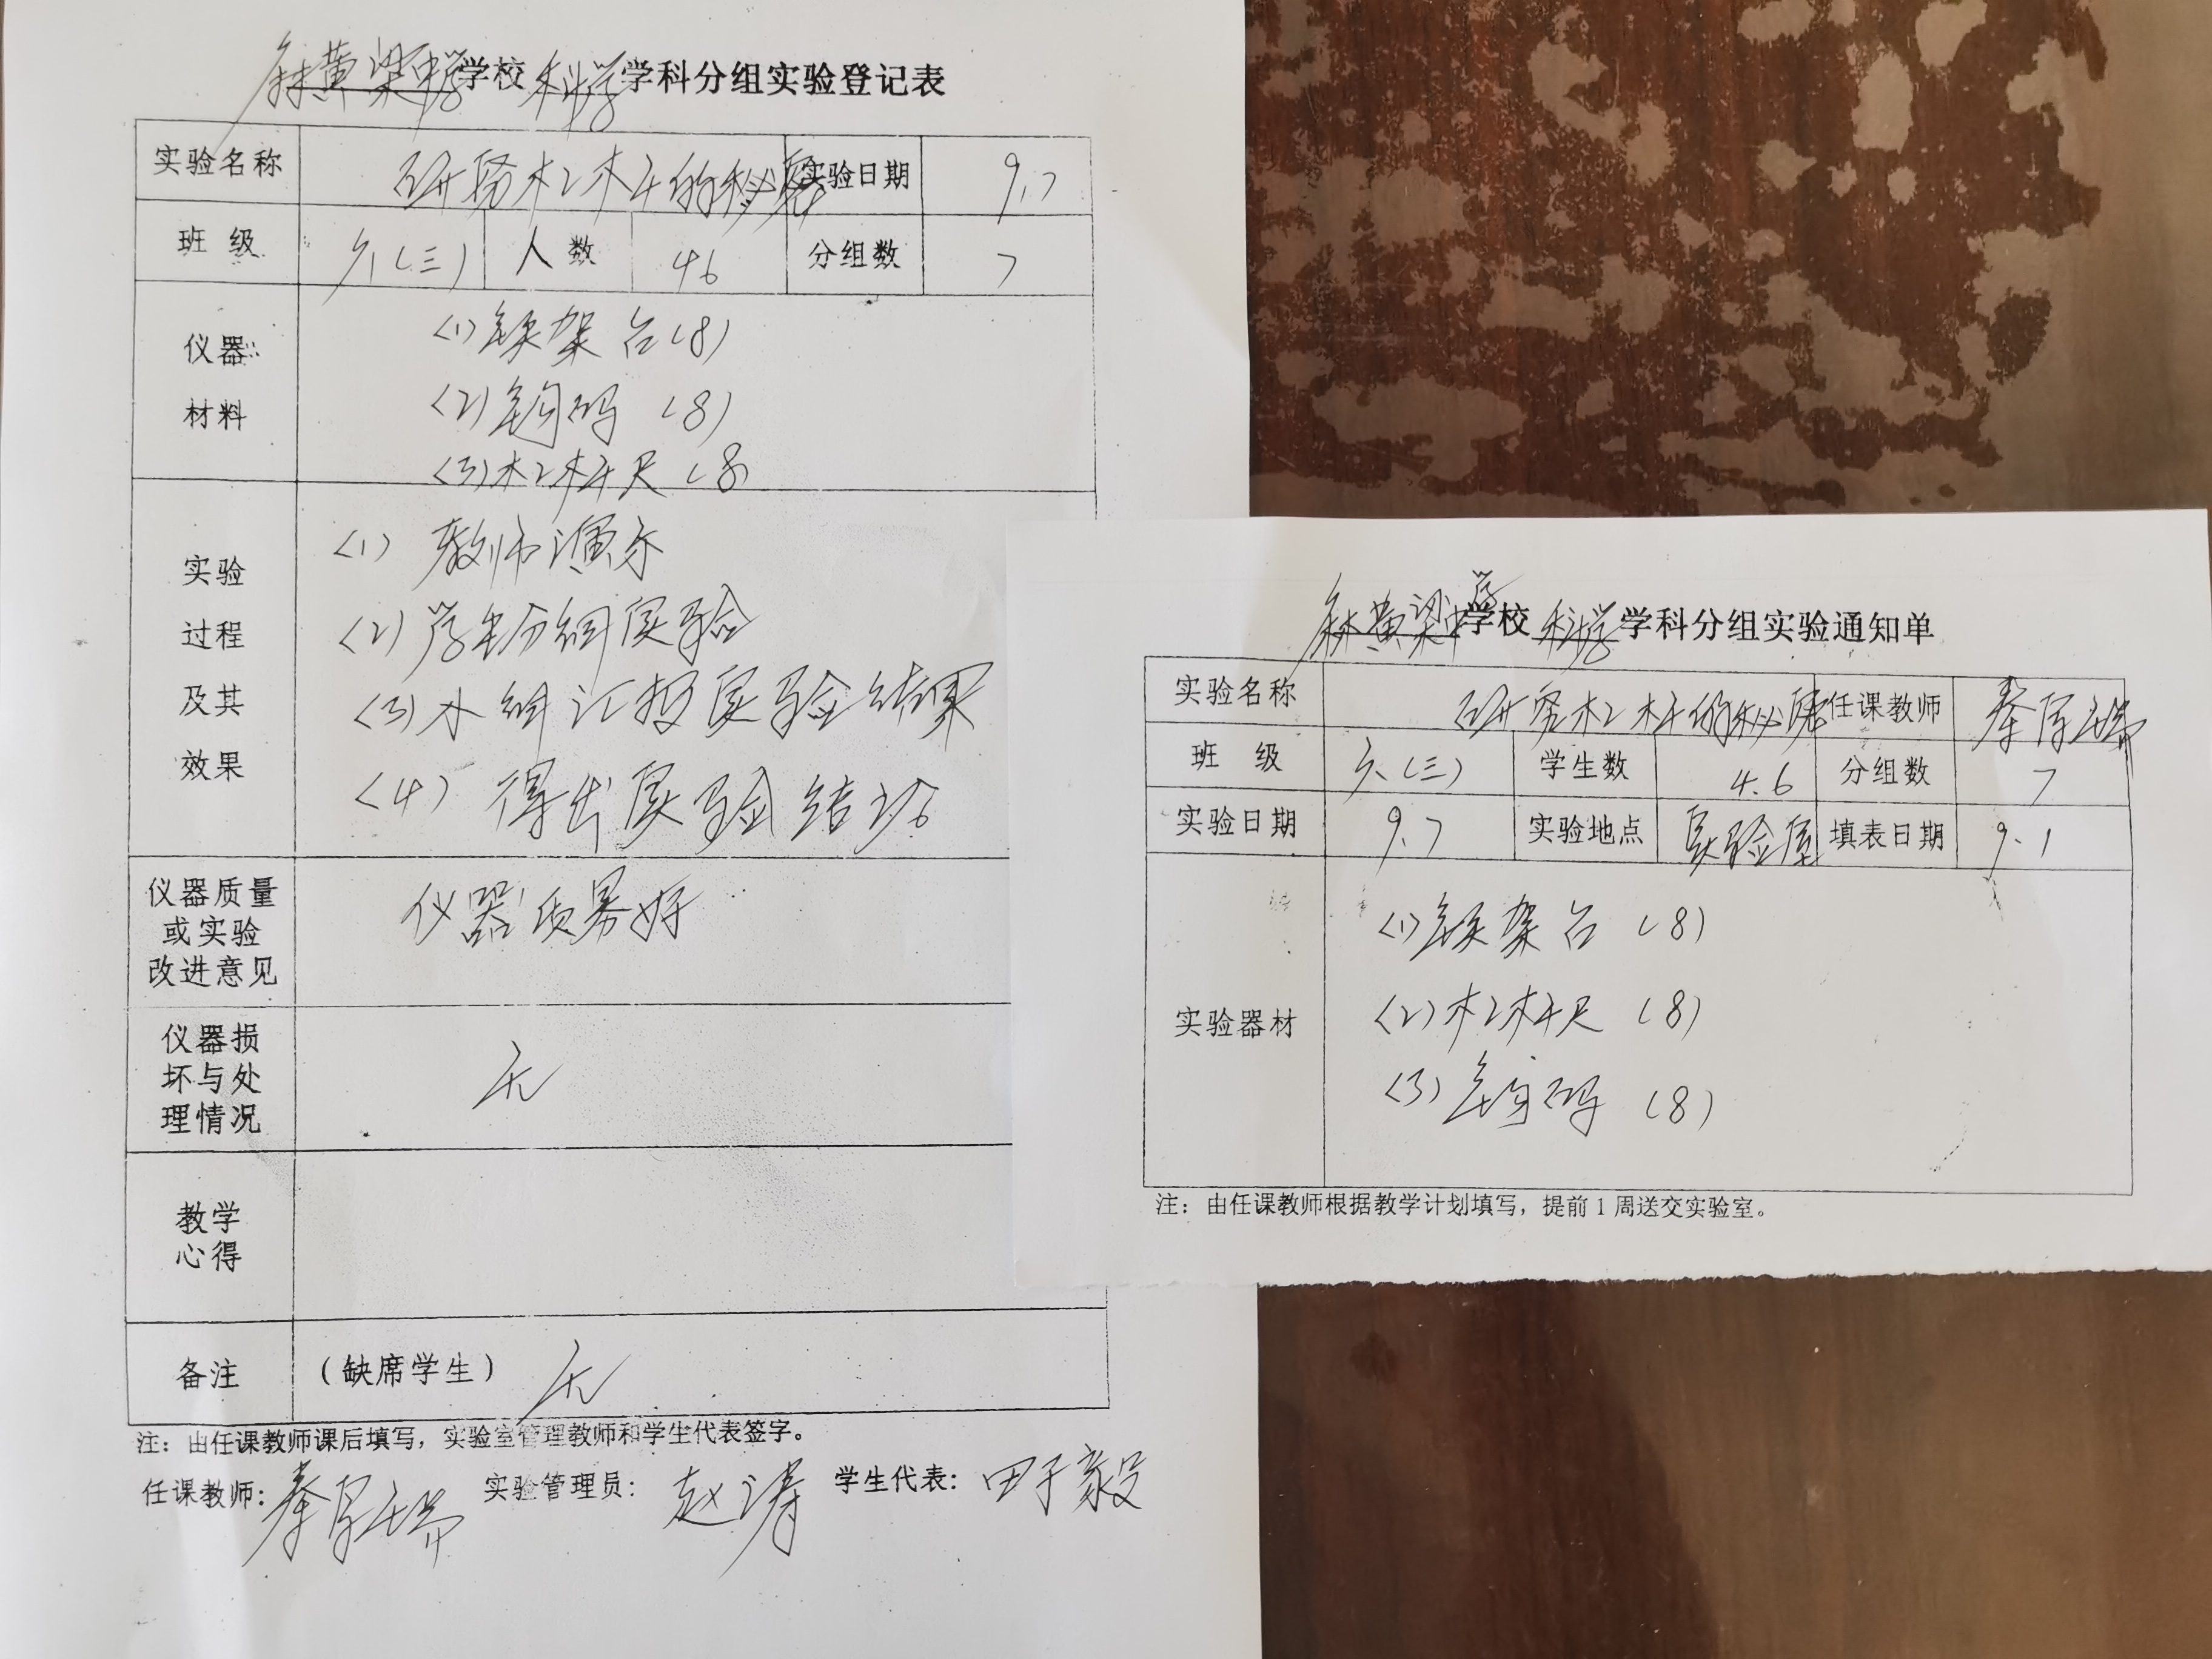 余黄梁中学学校 科学学科分组实验登记表
实验名称 研究杠杆的秘密 实验日期 9.7
班级 六(三) 人数 46 分组数 7
仪器材料
(1)铁架台(8)
(2)钩码(8)
(3)杠杆尺(8)
实验过程及其效果
(1) 教师演示
(2)学生分组实验
(3)小组汇报实验结果
(4)得出实验结论
仪器质量或实验改进意见 仪器质量好
仪器损坏与处理情况 无
教学心得
备注 (缺席学生) 无
注：由任课教师课后填写，实验室管理教师和学生代表签字。
任课教师：秦厚瑞 实验管理员：赵涛 学生代表：田子毅
黄梁中学学校 科学学科分组实验通知单
实验名称 研究杠杆的秘密 任课教师 秦厚瑞
班级 六(三) 学生数 46 分组数 7
实验日期 9.7 实验地点 实验室 填表日期 9.1
实验器材
(1)铁架台(8)
(2)杠杆尺(8)
(3)钩码(8)
注：由任课教师根据教学计划填写，提前1周送交实验室。